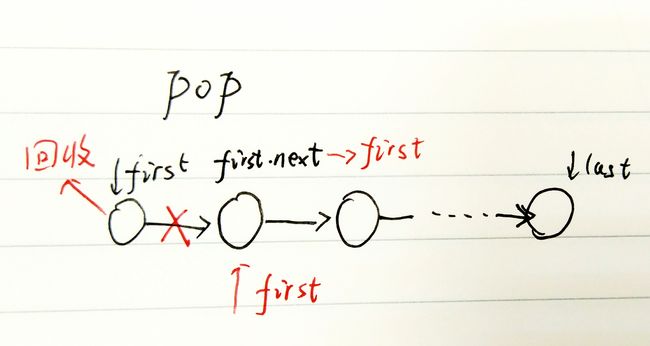 pop
回收 ↓first first.next→first ↓last
↑first